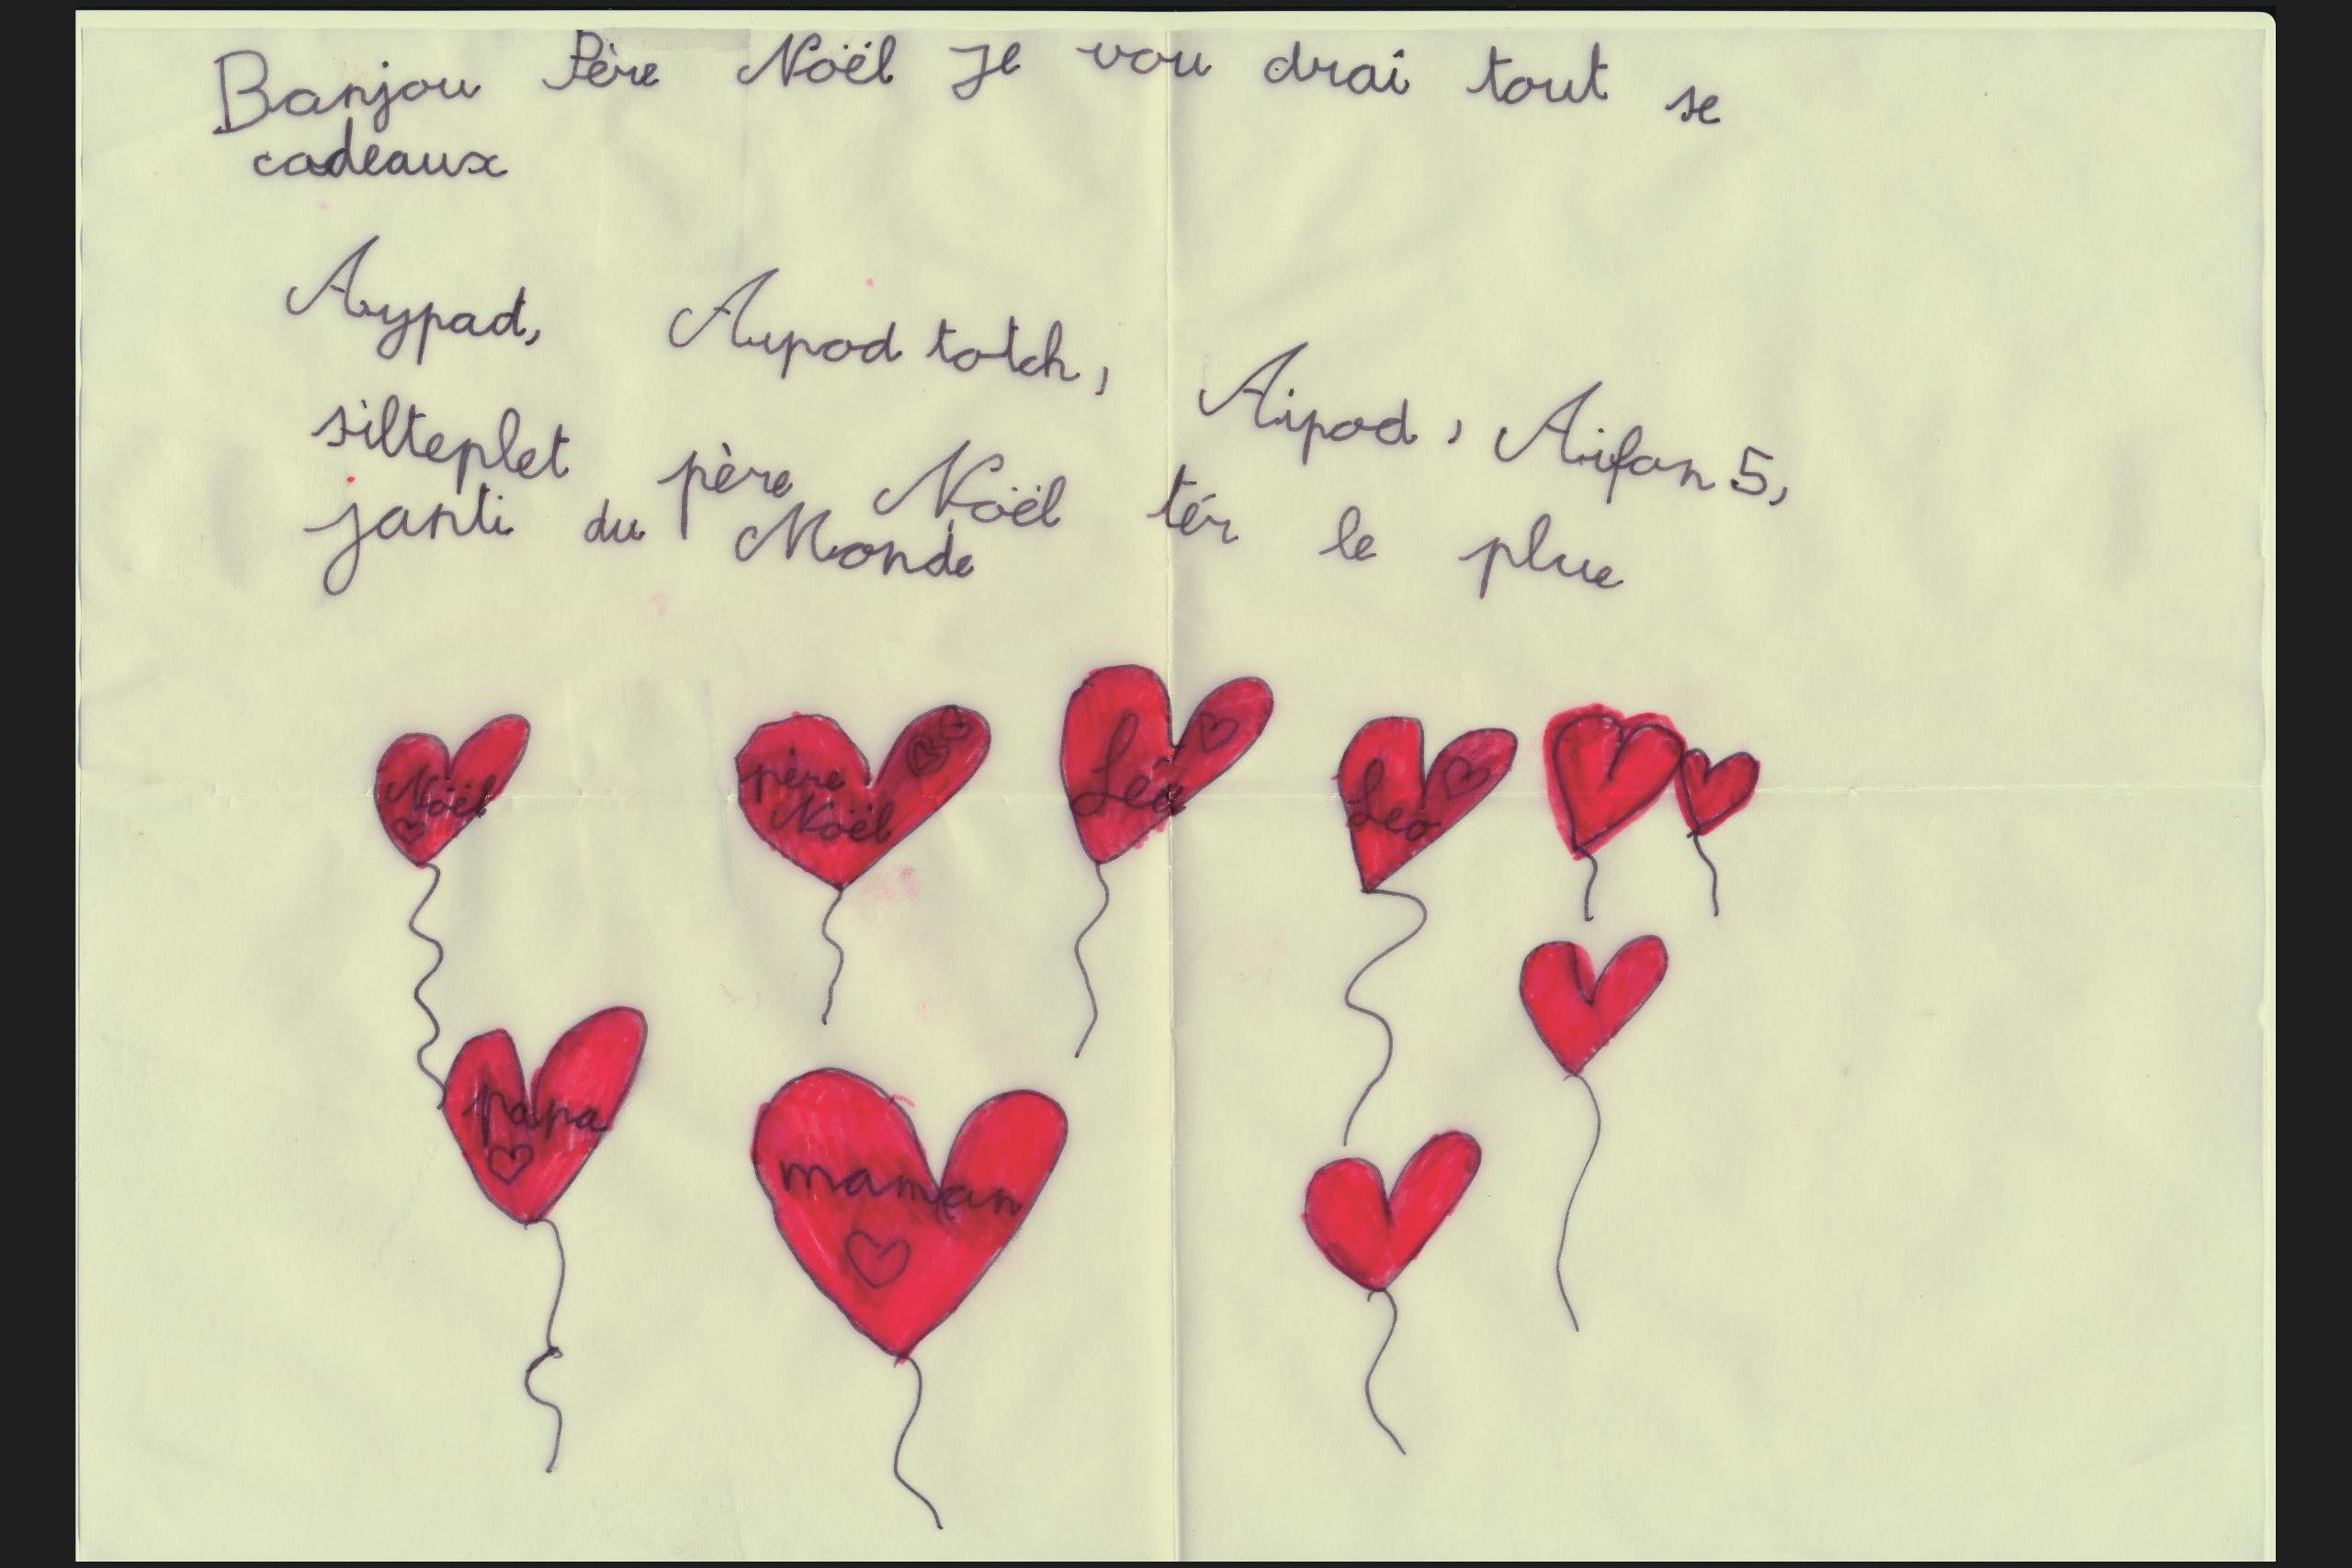 Banjou Père Noël Je vou drai tout se
cadeaux
Aypad, Aypod totch, Aipod, Aifon 5,
silteplet père Noël tér le plue
janti du Monde
Noël
père
Noël
Léa
Leo
papa
maman